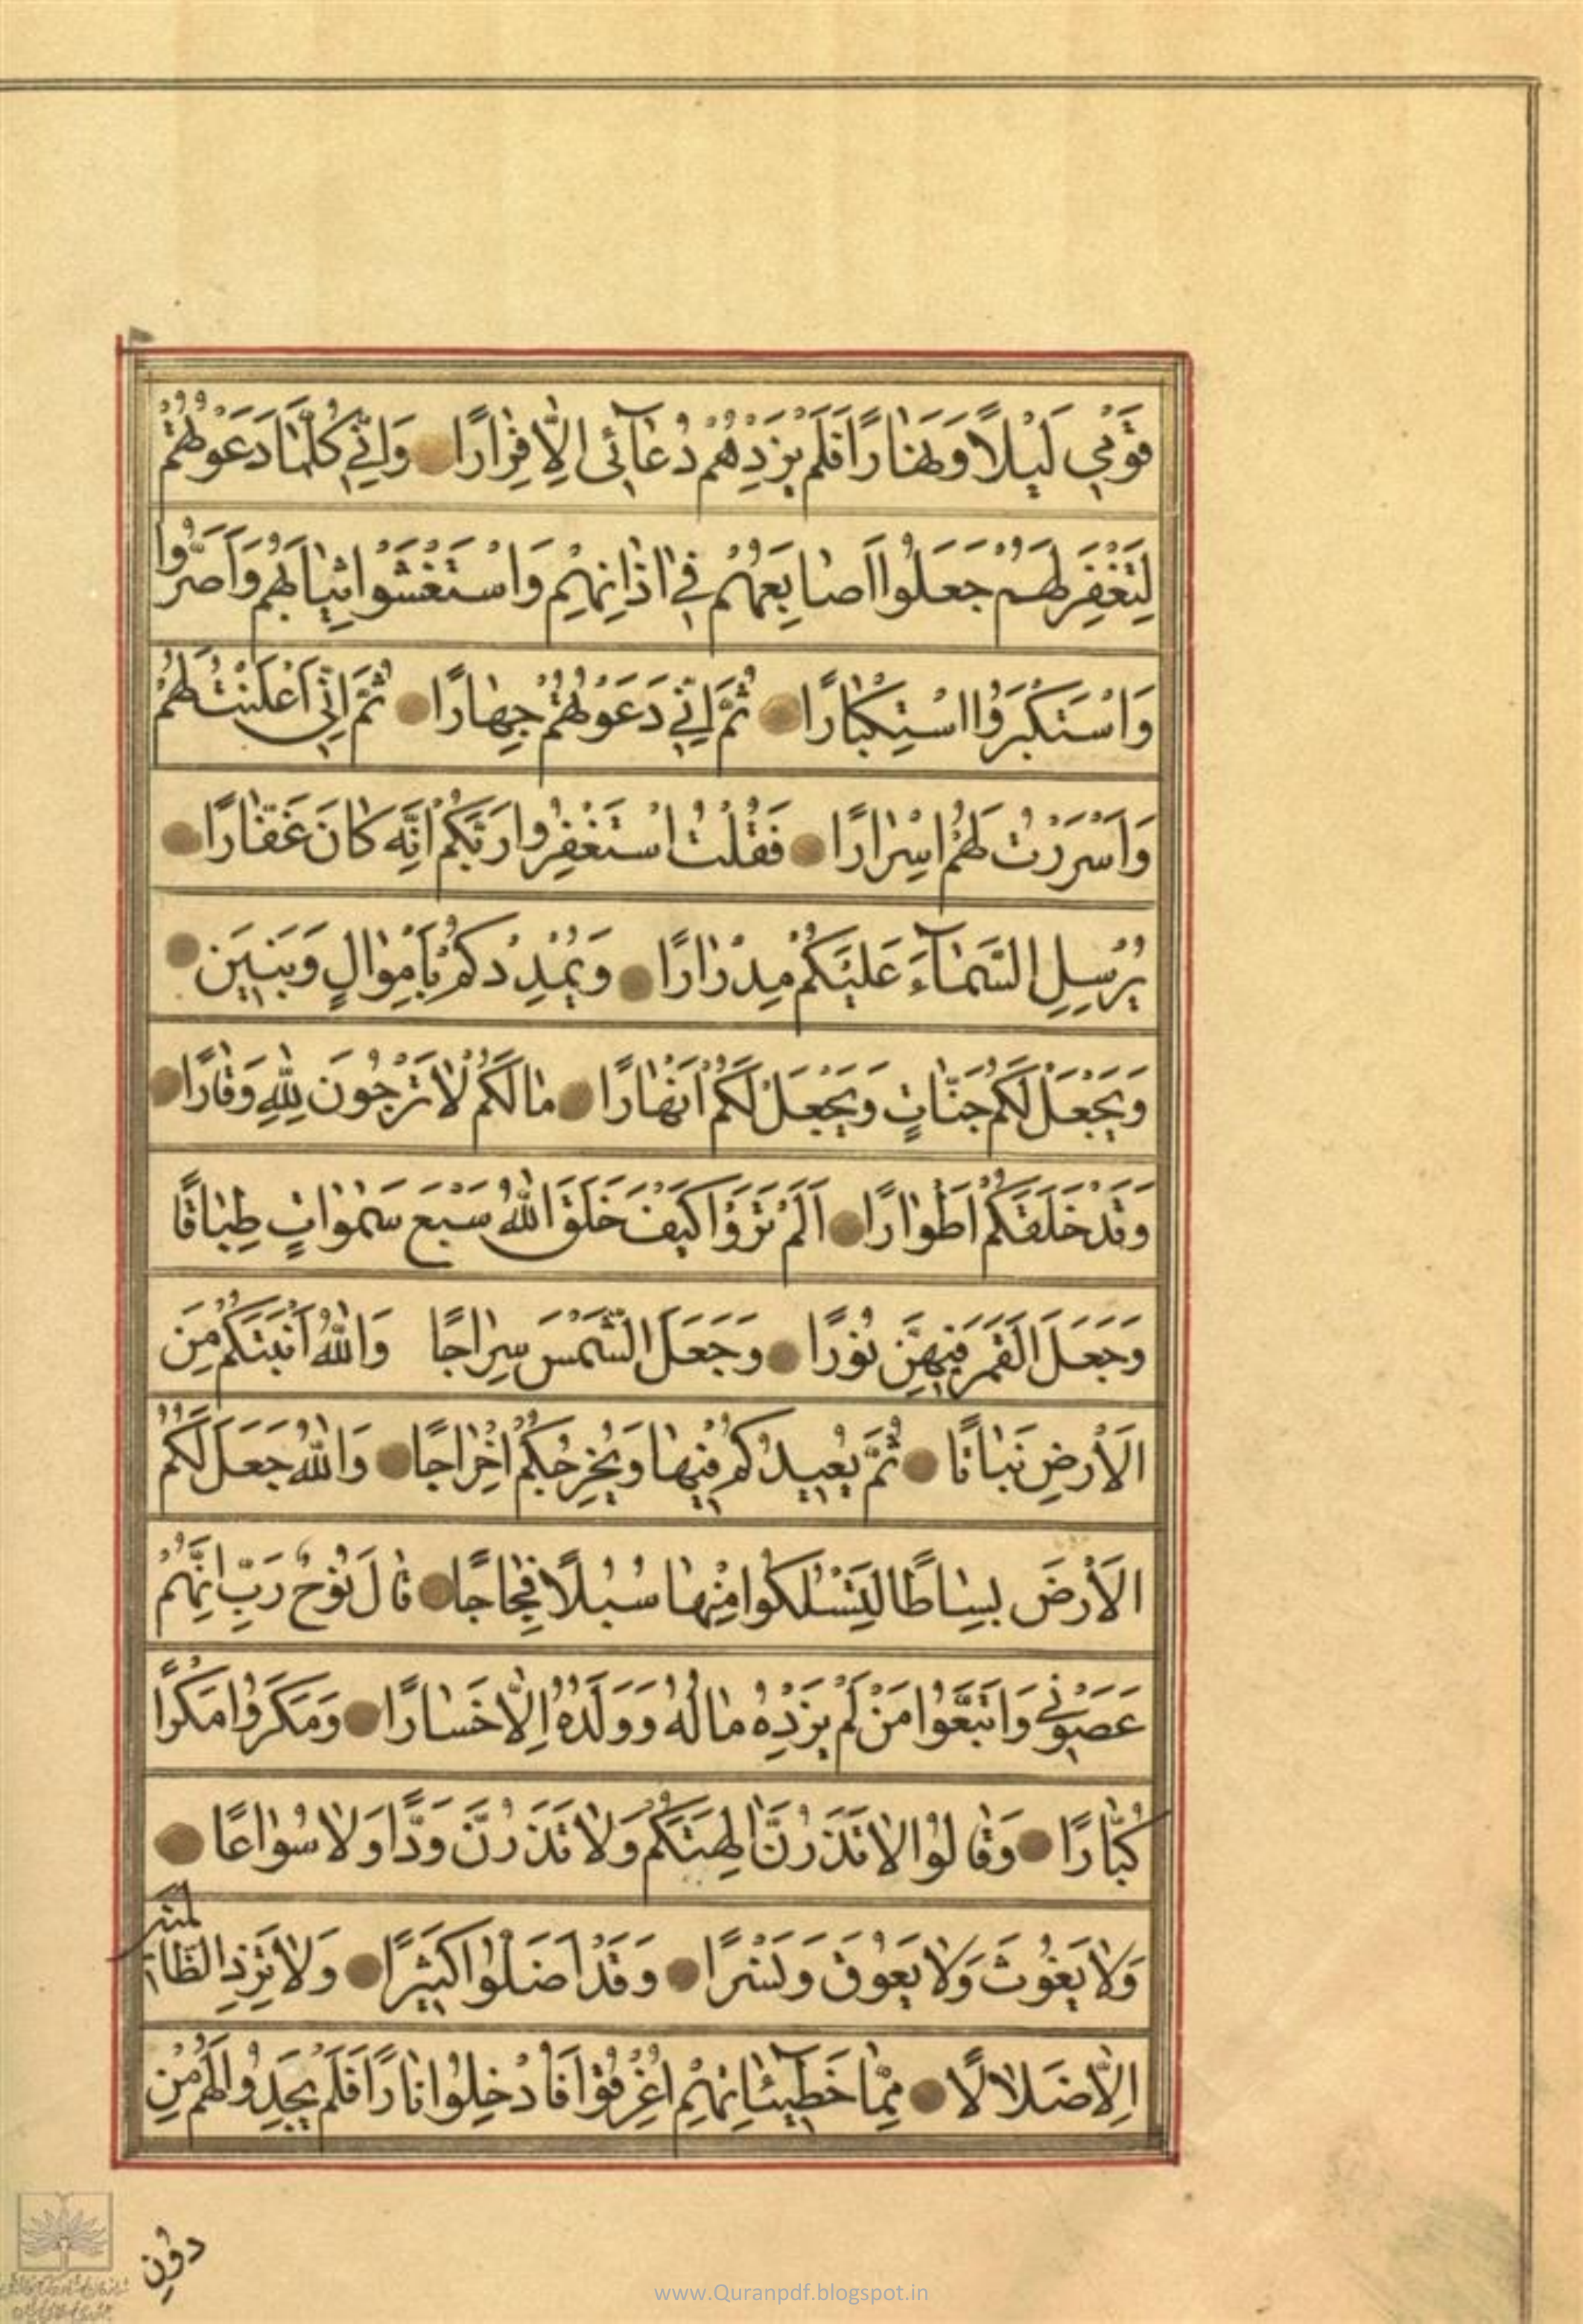 قَوْمِي لَيْلًا وَنَهَارًا فَلَمْ يَزِدْهُمْ دُعَآئِى اِلَّا فِرَارًا وَاِنِّي كُلَّمَا دَعَوْتُهُمْ
لِتَغْفِرَ لَهُمْ جَعَلُوا اَصَابِعَهُمْ فِي اذَانِهِمْ وَاسْتَغْشَوْا ثِيَابَهُمْ وَاَصَرُّوا
وَاسْتَكْبَرُوا اسْتِكْبَارًا ثُمَّ اِنِّي دَعَوْتُهُمْ جِهَارًا ثُمَّ اِنِّي اَعْلَنْتُ لَهُمْ
وَاَسْرَرْتُ لَهُمْ اِسْرَارًا فَقُلْتُ اسْتَغْفِرُوا رَبَّكُمْ اِنَّه كَانَ غَفَّارًا
يُرْسِلِ السَّمَآءَ عَلَيْكُمْ مِدْرَارًا وَيُمْدِدْكُمْ بِاَمْوَالٍ وَبَنِينَ
وَيَجْعَلْ لَكُمْ جَنَّاتٍ وَيَجْعَلْ لَكُمْ اَنْهَارًا مَا لَكُمْ لَا تَرْجُونَ لِلّٰهِ وَقَارًا
وَقَدْ خَلَقَكُمْ اَطْوَارًا اَلَمْ تَرَوْا كَيْفَ خَلَقَ اللّٰهُ سَبْعَ سَمٰوَاتٍ طِبَاقًا
وَجَعَلَ الْقَمَرَ فِيهِنَّ نُورًا وَجَعَلَ الشَّمْسَ سِرَاجًا وَاللّٰهُ اَنْبَتَكُمْ مِنَ
الْاَرْضِ نَبَاتًا ثُمَّ يُعِيدُكُمْ فِيهَا وَيُخْرِجُكُمْ اِخْرَاجًا وَاللّٰهُ جَعَلَ لَكُمُ
الْاَرْضَ بِسَاطًا لِتَسْلُكُوا مِنْهَا سُبُلًا فِجَاجًا قَالَ نُوحٌ رَبِّ اِنَّهُمْ
عَصَوْنِي وَاتَّبَعُوا مَنْ لَمْ يَزِدْهُ مَالُهُ وَوَلَدُهُ اِلَّا خَسَارًا وَمَكَرُوا مَكْرًا
كُبَّارًا وَقَالُوا لَا تَذَرُنَّ الِهَتَكُمْ وَلَا تَذَرُنَّ وَدًّا وَلَا سُوَاعًا
وَلَا يَغُوثَ وَيَعُوقَ وَنَسْرًا وَقَدْ اَضَلُّوا كَثِيرًا وَلَا تَزِدِ الظَّالِمِينَ
اِلَّا ضَلَالًا مِمَّا خَطِيئَاتِهِمْ اُغْرِقُوا فَاُدْخِلُوا نَارًا فَلَمْ يَجِدُوا لَهُمْ مِنْ
دُونِ
www.Quranpdf.blogspot.in